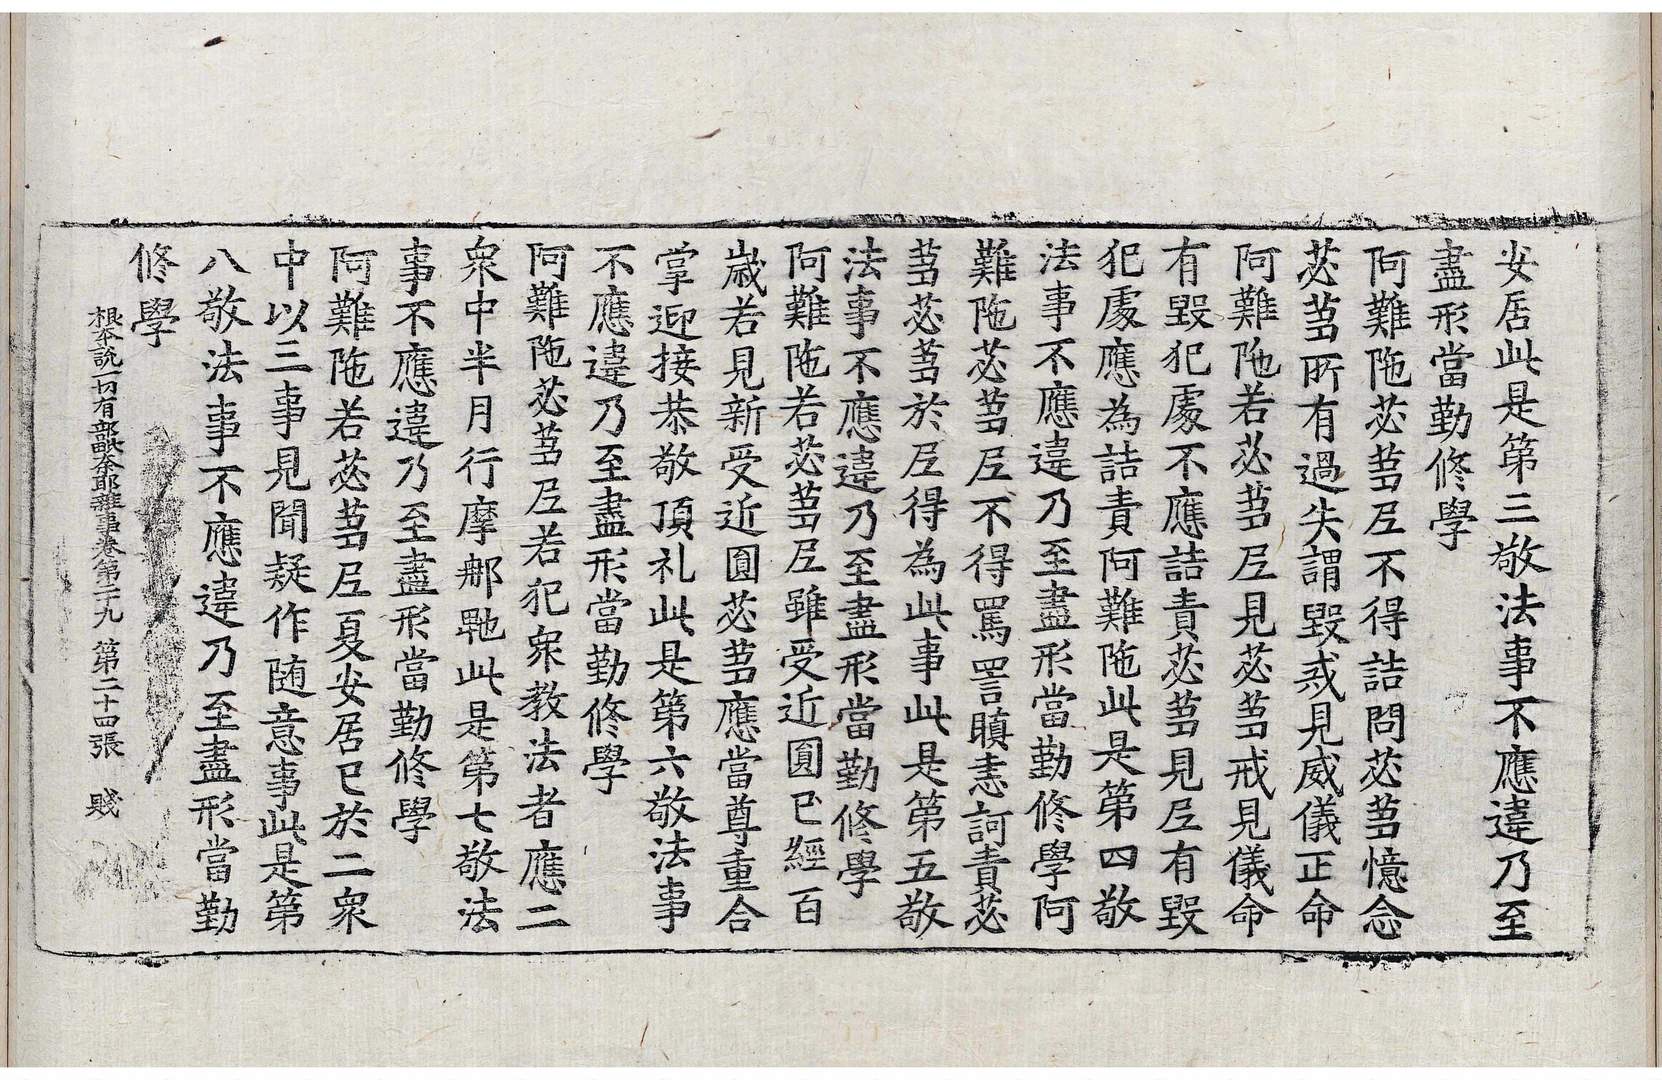 安居此是第三敬法事不應違乃至
盡形當勤修學
阿難陁苾芻尼不得詰問苾芻憶念
苾芻所有過失謂毀戒見威儀正命
阿難陁若苾芻尼見苾芻戒見儀命
有毀犯處不應詰責苾芻見尼有毀
犯處應為詰責阿難陁此是第四敬
法事不應違乃至盡形當勤修學阿
難陁苾芻尼不得罵詈瞋恚訶責苾
芻苾芻於尼得為此事此是第五敬
法事不應違乃至盡形當勤修學
阿難陁若苾芻尼雖受近圓已經百
歲若見新受近圓苾芻應當尊重合
掌迎接恭敬頂礼此是第六敬法事
不應違乃至盡形當勤修學
阿難陁苾芻尼若犯衆教法者應二
衆中半月行摩那𭴦此是第七敬法
事不應違乃至盡形當勤修學
阿難陁若苾芻尼夏安居已於二衆
中以三事見聞疑作随意事此是第
八敬法事不應違乃至盡形當勤
修學
根本說一切有部毗奈耶雜事卷第二十九 第二十四張 賤